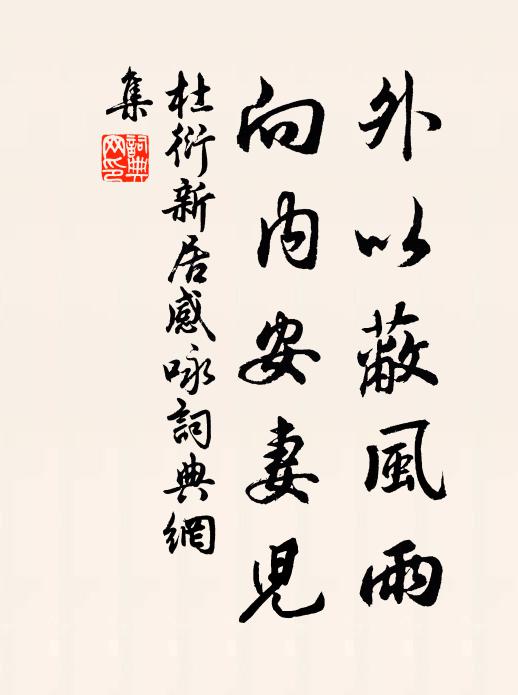 外以蔽風雨
向内安妻児
杜衍新居感咏詞典網
集
詞典
网印